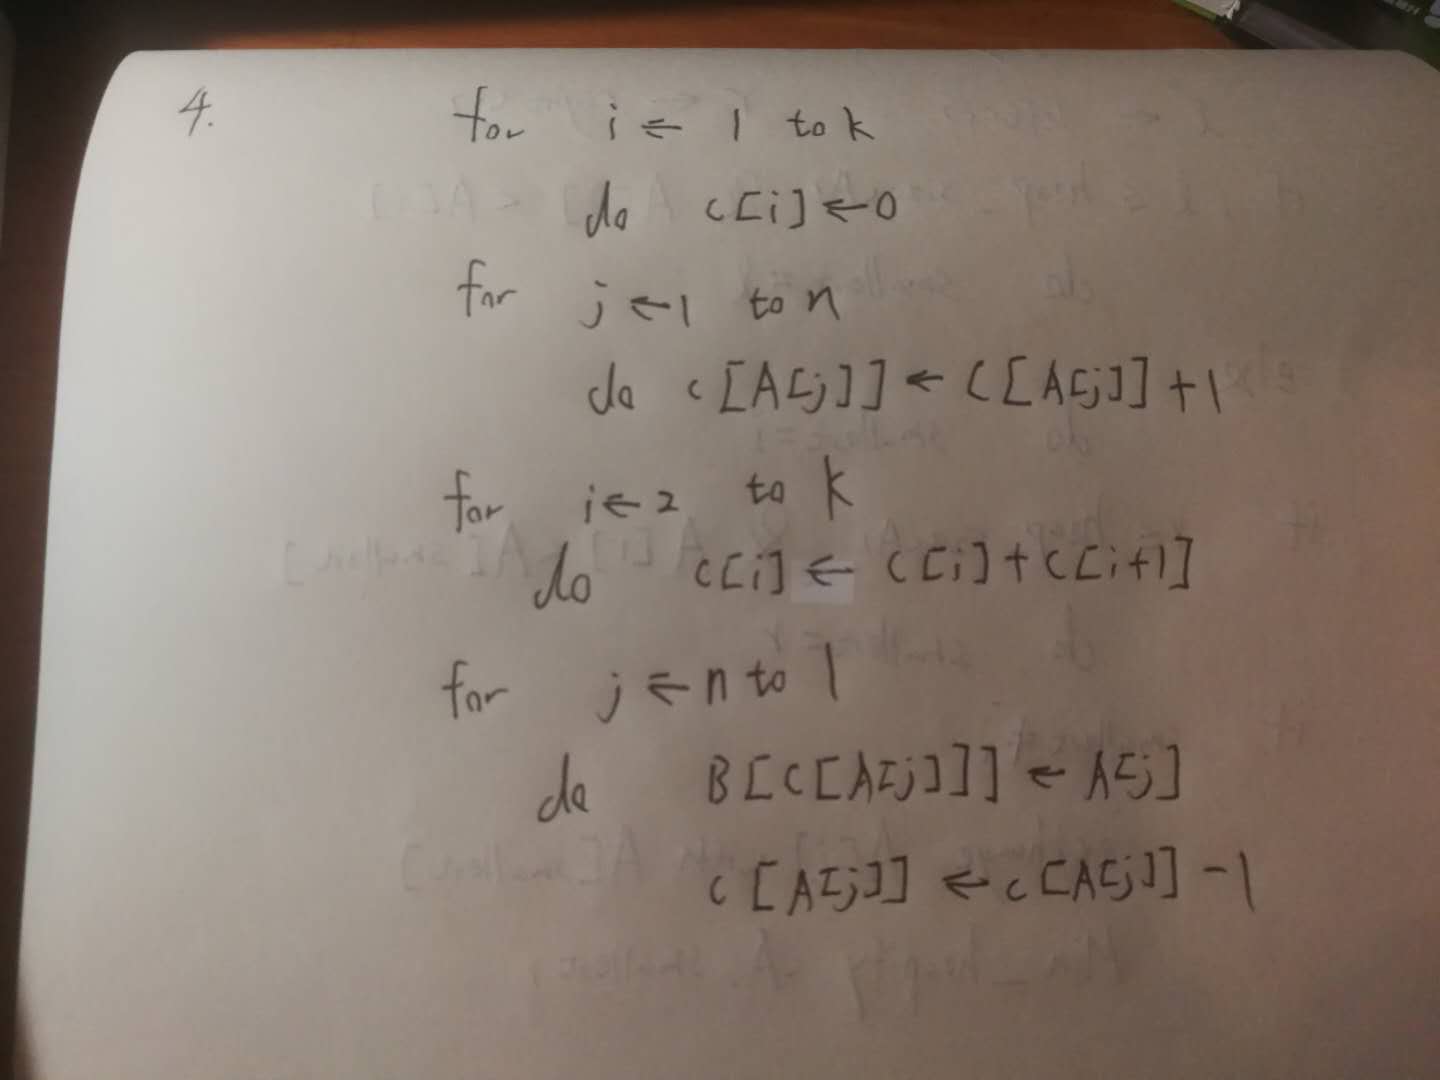 4. for i ← 1 to k
do c[i] ← 0
for j ← 1 to n
do c[A[j]] ← c[A[j]] + 1
for i ← 2 to k
do c[i] ← c[i] + c[i+1]
for j ← n to 1
do B[c[A[j]]] ← A[j]
c[A[j]] ← c[A[j]] - 1